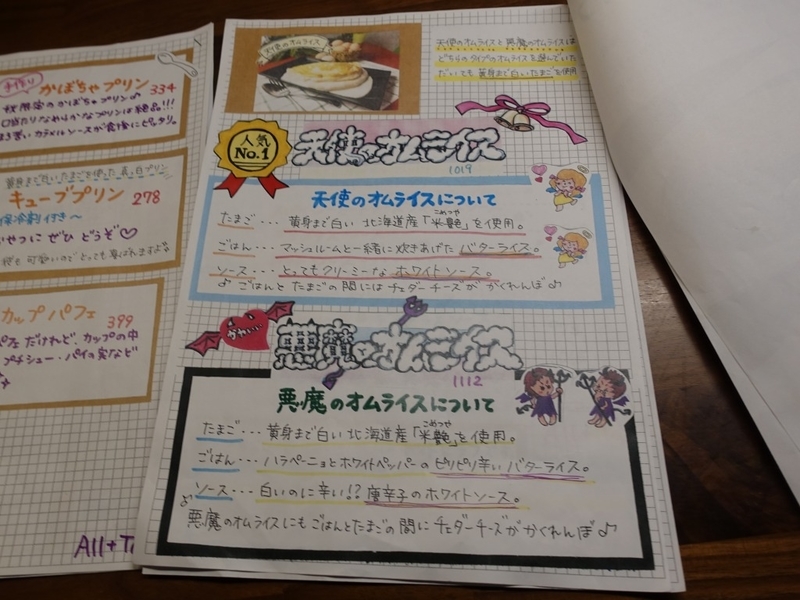 手作り
かぼちゃプリン 334
のかぼちゃプリン♪
なめらかなプリンは絶品!!!
カラメルソースが食後にピッタリ。
黄身まで白いたまごを使った真っ白プリン
キューブプリン 278
保冷剤付き～
おやつに ぜひ どうぞ♡
カップパフェ
399
パフェ だけれど、カップの中
プチシュー・パイの実など
All+T
天使のオムライス
天使のオムライスと悪魔のオムライスは
どちらのタイプのオムライスを選んでいた
だいても 黄身まで白いたまご使用
人気
No.1
天使のオムライス
1019
天使のオムライスについて
たまご・・・黄身まで白い 北海道産「米艶」を使用。
こめつや
ごはん・・・マッシュルームと一緒に炊きあげた バターライス。
ソース・・・とってもクリーミーな ホワイトソース。
♪ ごはんと たまごの間には チェダーチーズが かくれんぼ♪
かわいい
悪魔のオムライス
1112
悪魔のオムライスについて
たまご・・・黄身まで白い 北海道産「米艶」を使用。
こめつや
ごはん・・・ハラペーニョとホワイトペッパーの ピリピリ辛い バターライス。
ソース・・・白いのに辛い!? 唐辛子のホワイトソース。
♪悪魔のオムライスにも ごはんとたまごの間に チェダーチーズが かくれんぼ♪